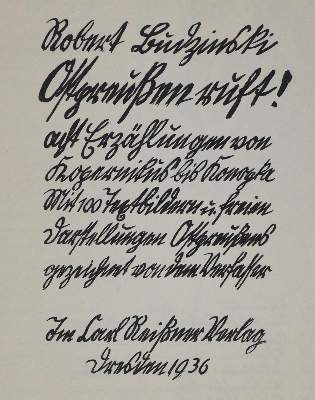 Robert Budzinski
Ostpreußen ruft!
acht Erzählungen von
Kopernikus bis Konopka
Mit 100 Textbildern u. freien
Darstellungen Ostpreußens
gezeichnet von dem Verfasser
Im Carl Reißner Verlag
Dresden 1936